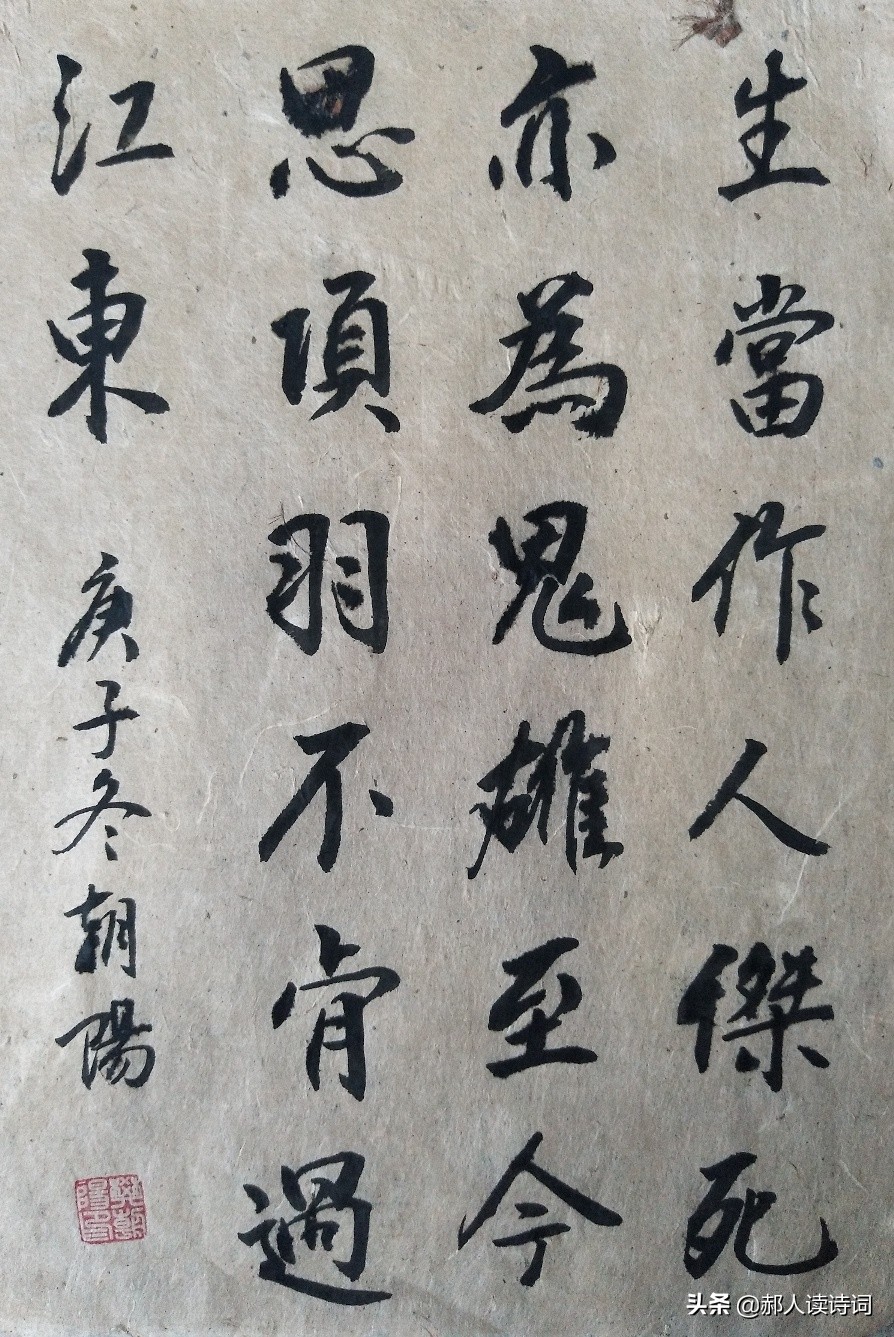 生當作人傑死
亦為鬼雄至今
思項羽不肯過
江東
庚子冬朝陽
头条 @郝人读诗词